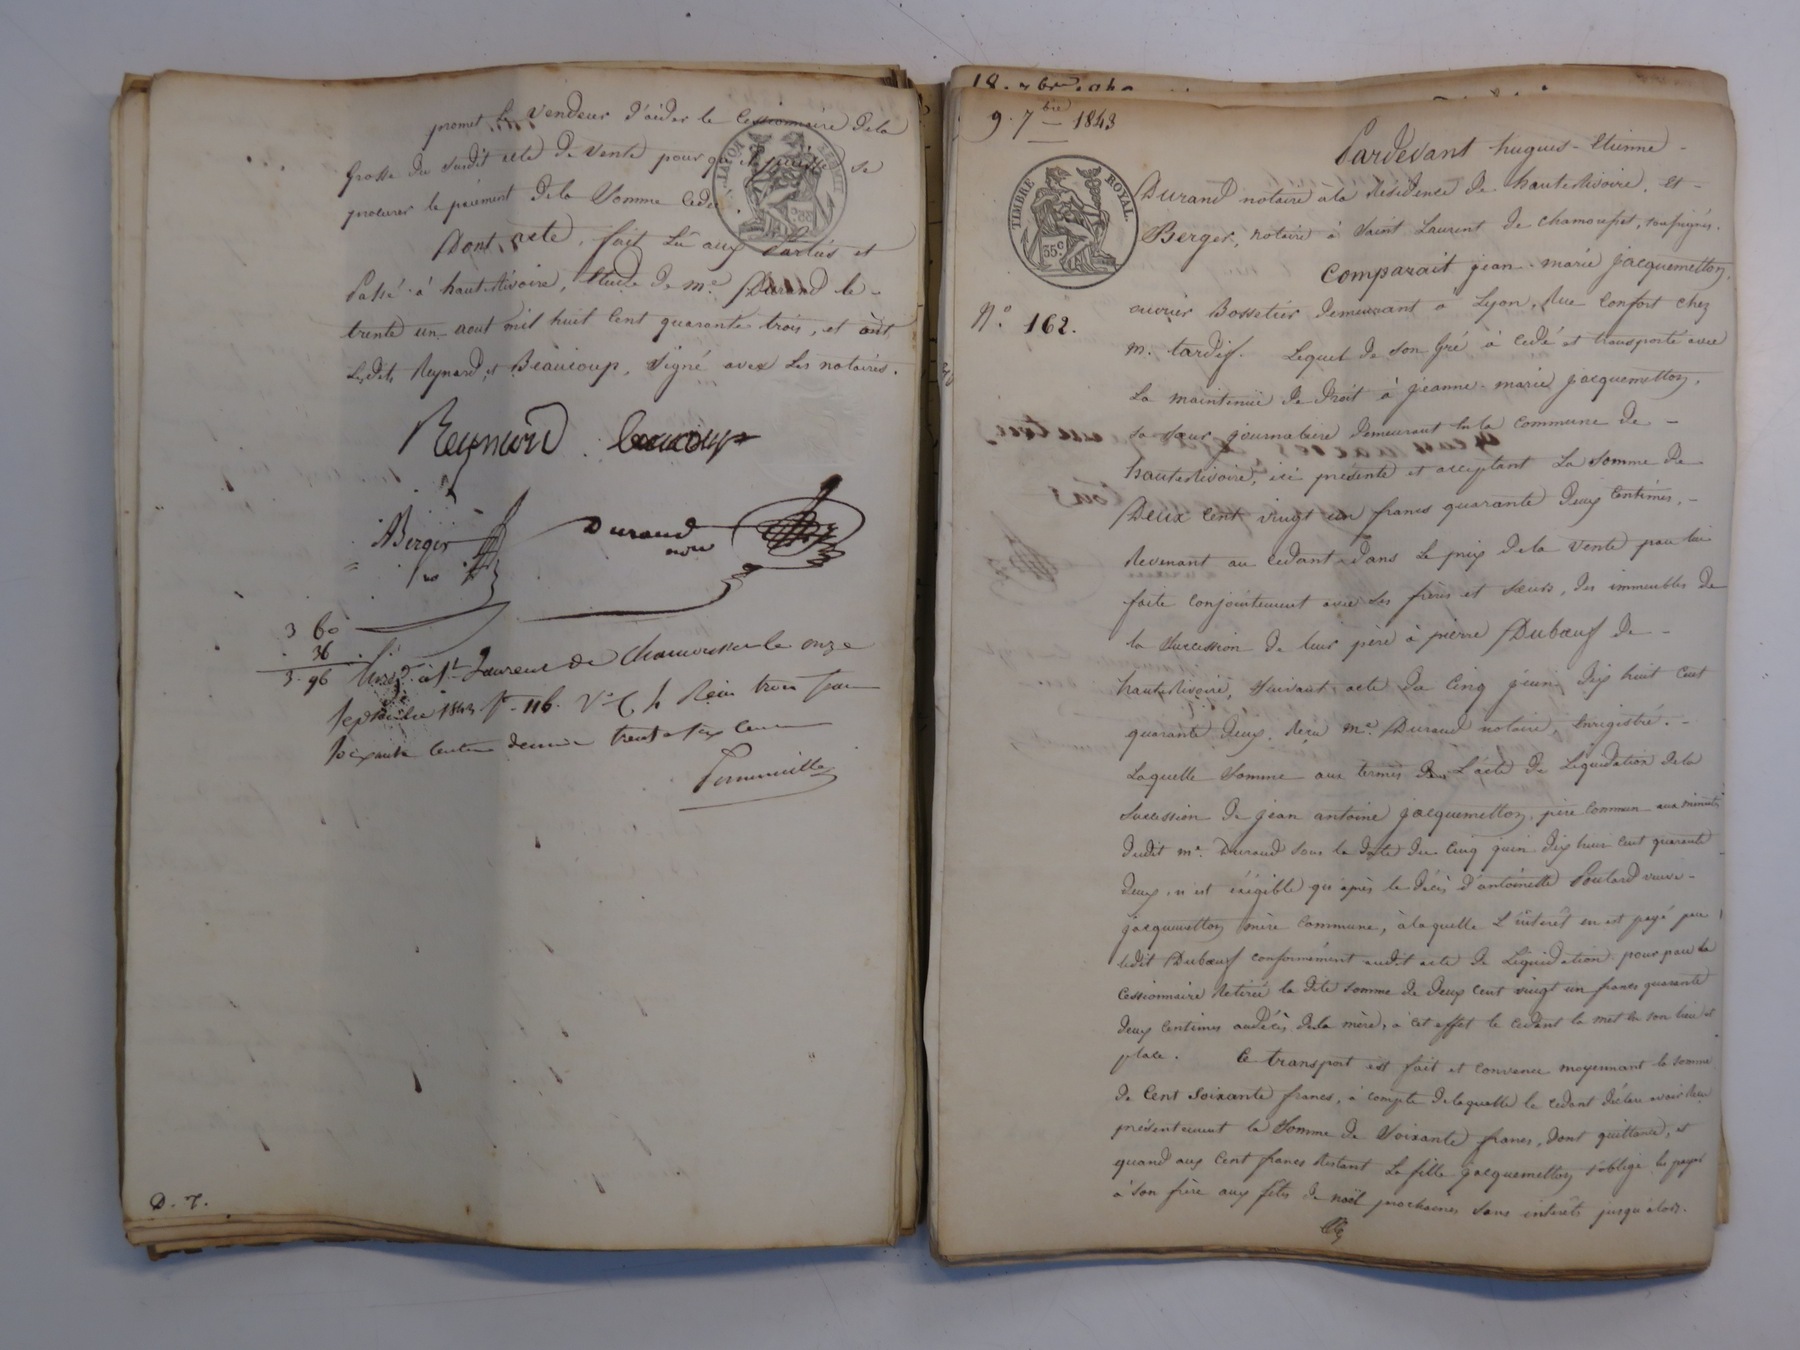 promet le vendeur d'aider le Cessionnaire de la
grosse du susdit acte de vente pour qu'il puisse se
procurer le paiement de la somme cedée.
Dont acte, fait lû aux Parties et
Passé à hauterivoire, Etude de me. Durand le -
trente un aout mil huit Cent quarante trois, et ont
Lesdits Reynard et Beaucoup, signé avec les notaires.
Reynard beaucoup
ABerger Durand
no nore
3 60
36
3.96 Enreg. à St Laurent de Chamousset le onze
septembre 1843 fo 116. Vo C 4 Reçu trois francs
soixante centimes decime trente six cent
D. 7.
18. 7bre
9. 7bre 1843
Pardevant hugues-Etienne -
TIMBRE ROYAL.
35c
Durand notaire a la Résidence de hauterivoire, et -
Berger, notaire à Saint Laurent de chamousset, soussignés.
Comparait jean-marie jacquemetton,
No. 162.
ouvrier Bossetier demeurant à Lyon, Rue Confort chez
m. tardif. Lequel de son gré à cedé et transporté avec
La maintenue de droit à jeanne-marie jacquemetton,
sa sœur journaliere demeurant en la commune de -
hauterivoire, ici présente et acceptant La somme de
Deux Cent vingt un francs quarante deux Centimes, -
Revenant au cedant dans le prix de la vente par lui
faite conjointement avec ses frères et sœurs, des immeubles de
la succession de leur père à pierre Dubœuf de -
hauterivoire, suivant acte du Cinq juin dix huit cent
quarante deux, Reçu me. Durand notaire, enregistré. -
Laquelle somme aux termes de L'acte de Liquidation de la
succession de jean antoine jacquemetton, père commun aux minutes
dudit me. Durand sous la date du Cinq juin dix huit cent quarante
deux, n'est éxigible qu'après le décès d'antoinette Poulard veuve -
jacquemetton mère commune, à laquelle L'intérêt en est payé par
ledit Dubœuf conformément audit acte de Liquidation. pour par la
cessionnaire Retirer la dite somme de deux cent vingt un francs quarante
deux centimes au décès de la mère, à cet effet le cedant la met en son lieu et
place. Ce transport est fait et convenu moyennant la somme
de Cent soixante francs, à compte de laquelle le cedant déclare avoir Reçu
présentement la somme de soixante francs, dont quittance, et
quand aux Cent francs Restant La fille jacquemetton s'oblige les payer
à son frère aux fêtes de noël prochaines sans intérêts jusqu'alors.